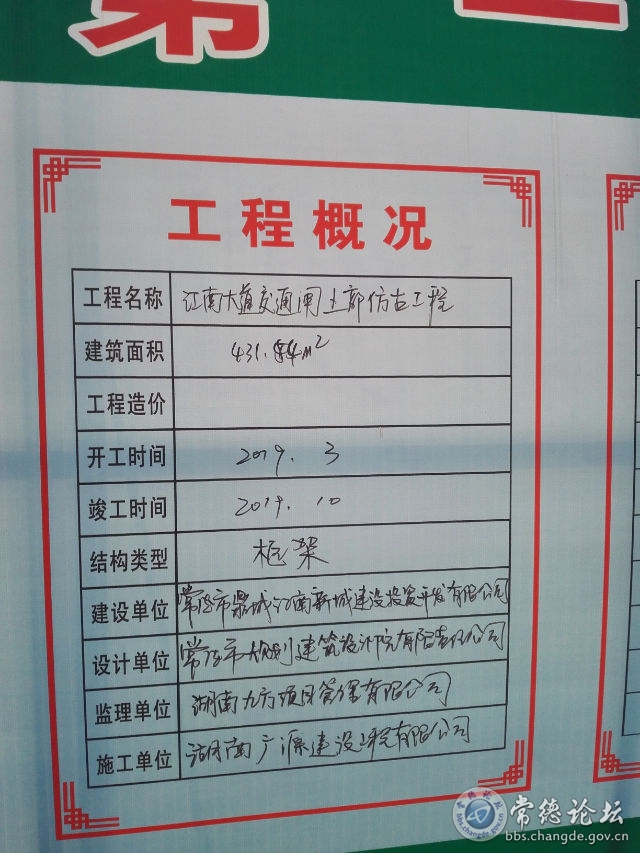 工程概况
工程名称 江南大道交通闸上部仿古工程
建筑面积 431.84m²
工程造价
开工时间 2019. 3
竣工时间 2019. 10
结构类型 框架
建设单位 常德市鼎城江南新城建设投资开发有限公司
设计单位 常德市规划建筑设计院有限责任公司
监理单位 湖南九方项目管理有限公司
施工单位 湖南广源建设工程有限公司
常德论坛
bbs.changde.gov.cn